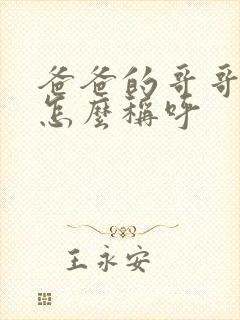 爸爸的哥哥
怎麼稱呼
王永安